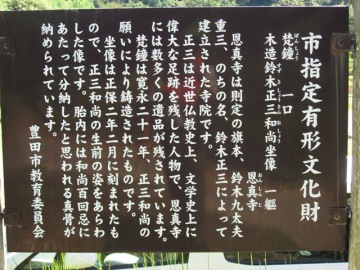 市指定有形文化財
ぼんしょう
梵鐘　一口
木造鈴木正三和尚坐像　一軀
恩真寺
おんしんじ
恩真寺は則定の旗本、鈴木九太夫
重三、のちの名、鈴木正三によって
建立された寺院です。
正三は近世仏教史上、文学史上に
偉大な足跡を残した人物で、恩真寺
には数多くの遺品が残されています。
梵鐘は寛永二十一年、正三和尚の
願いにより鋳造されたものです。
坐像は正保二年二月に刻まれたも
ので、正三和尚の生前の姿をあらわ
した像です。胎内には和尚百回忌に
あたって分納したと思われる真骨が
納められています。
豊田市教育委員会